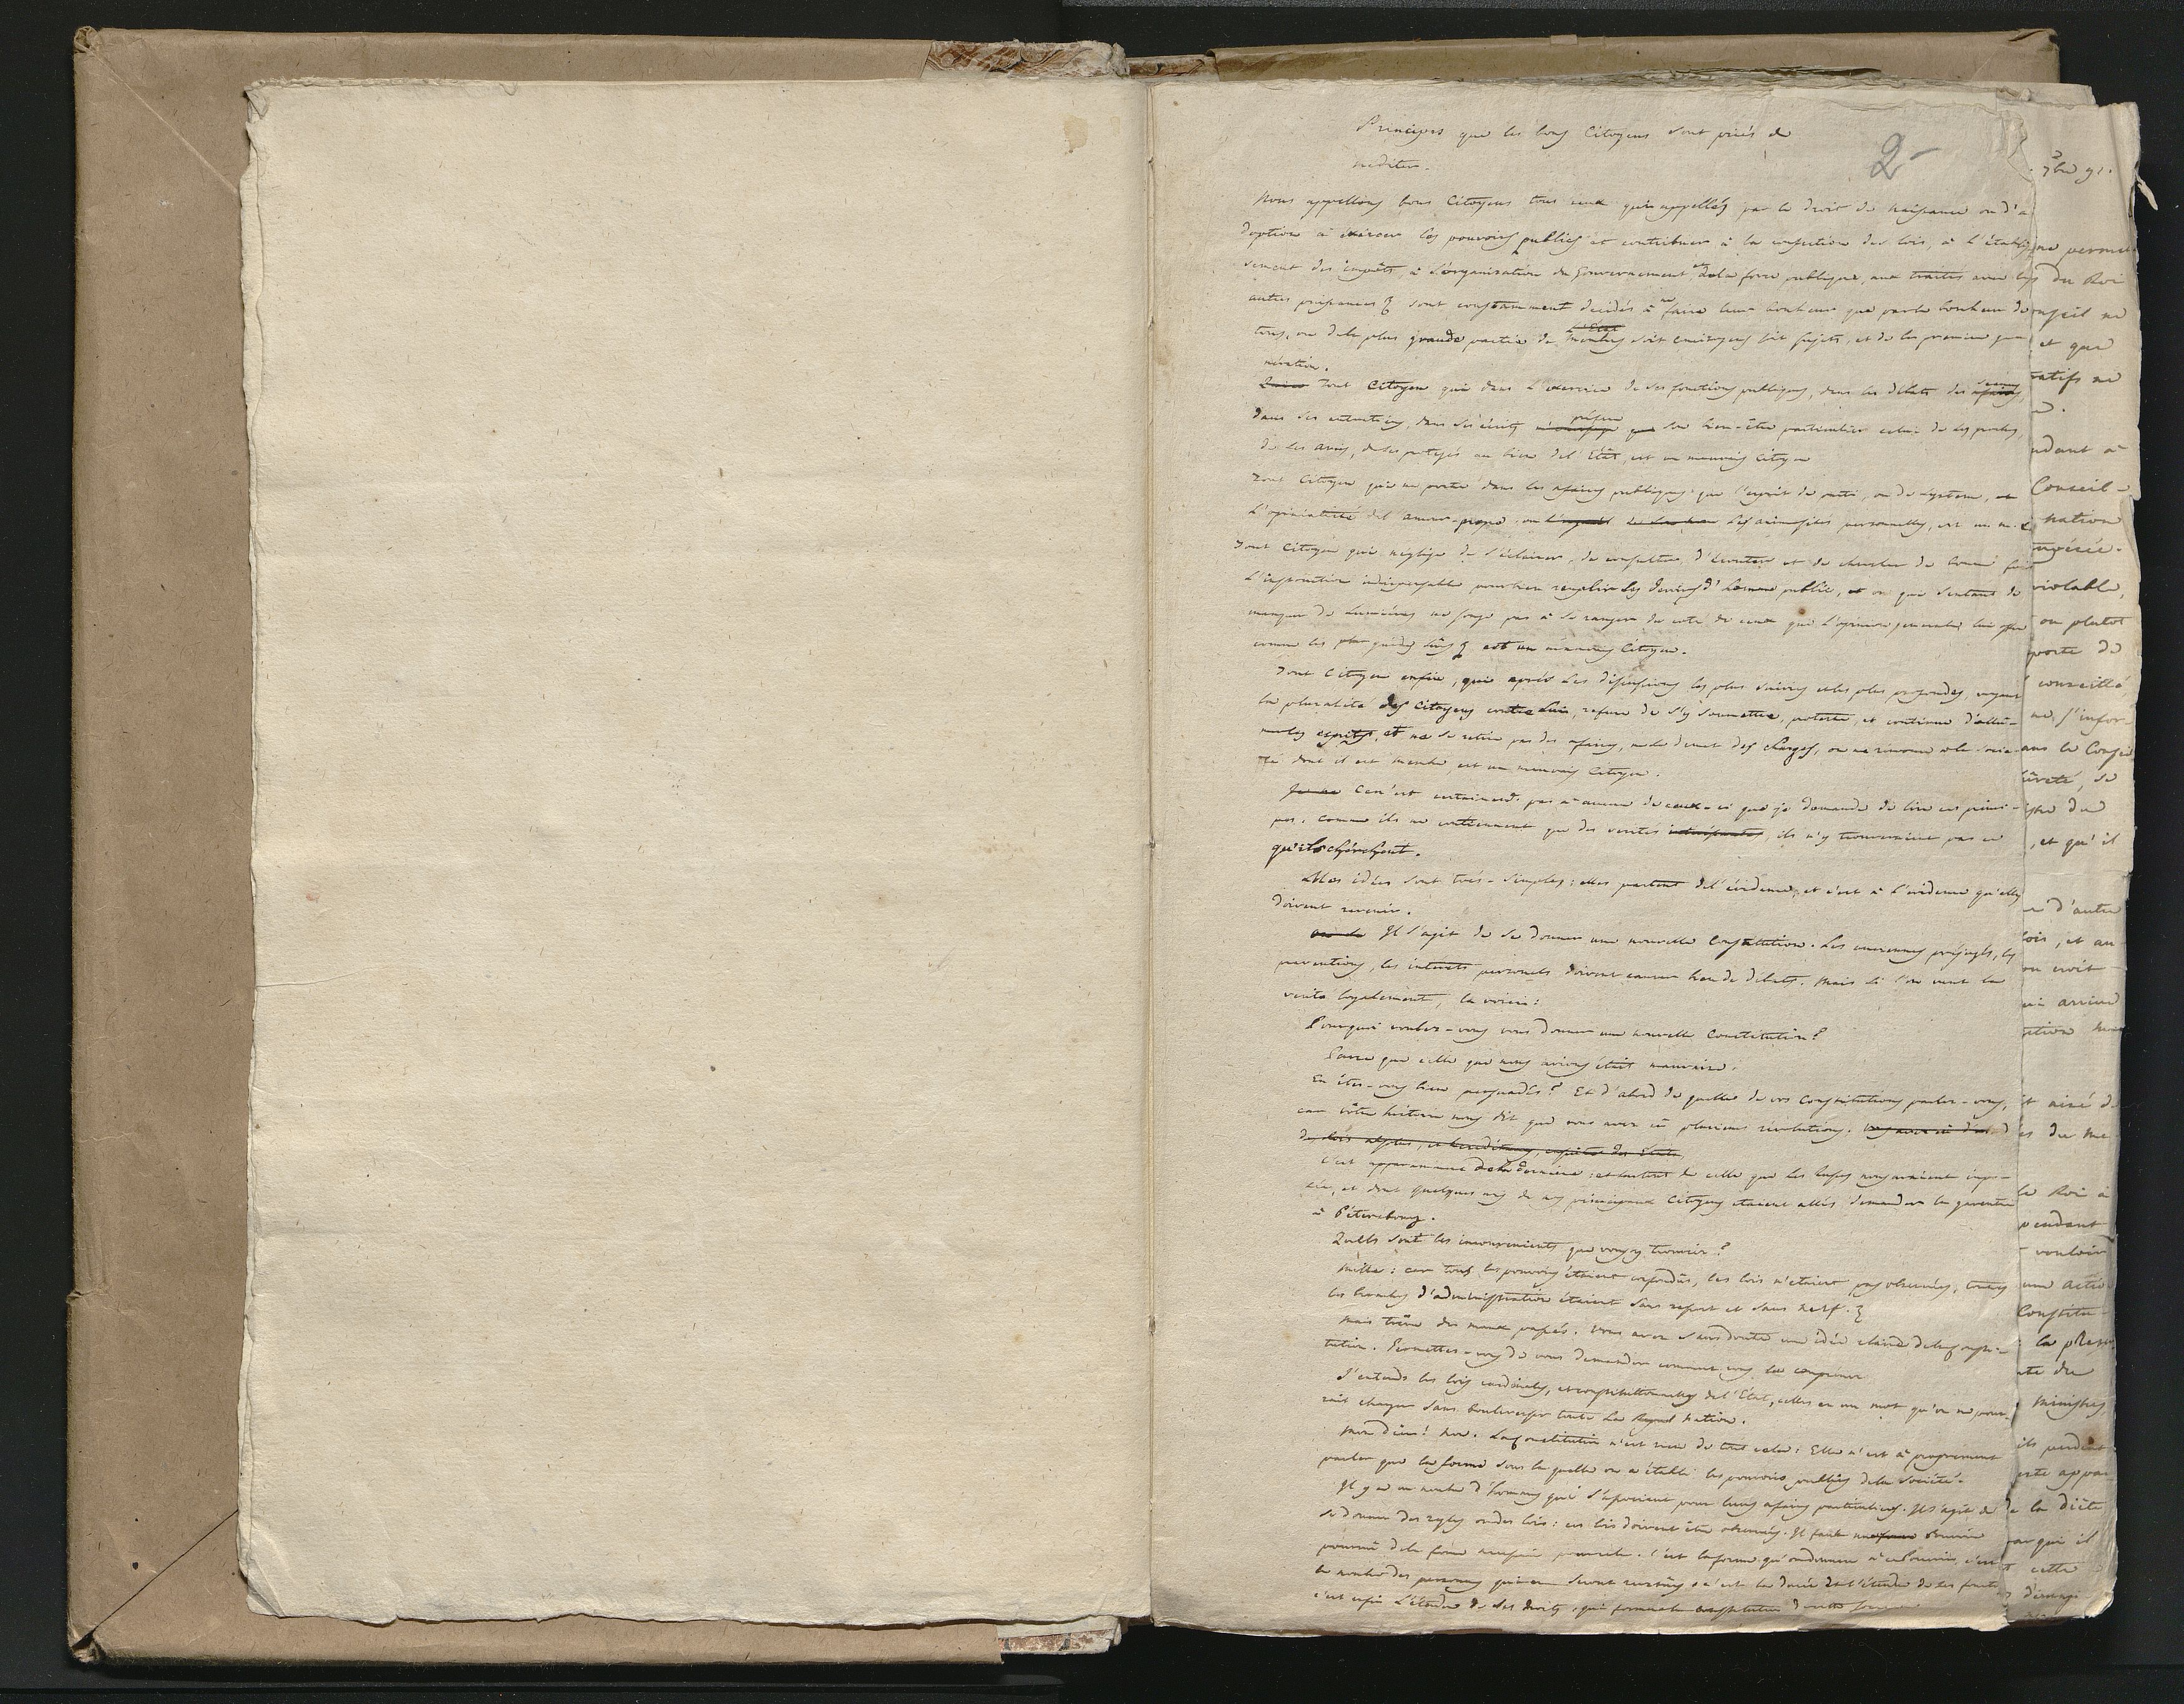 Principes que les bons Citoyens sont priés de
mediter.
2
Nous appellons bons Citoyens tous ceux qui appellés par le droit de naissance ou d'a
doption à exercer les pouvoirs publics et contribuer à la confection des lois, à l'établis
sement des impôts, à l'organisation du Gouvernement et de la force publique, aux traités avec les
autres puissances sont constamment decidés à ne faire leur bonheur que par le bonheur de
tous, ou de la plus grande partie de l'Etat membres soit concitoyens soit sujets, et de la premiere ge
neration.
Tout Citoyen qui dans l'exercice de ses fonctions publiques, dans les débats des
dans ses entretiens, dans ses écrits préfere son bien-être particulier celui de ses proches,
de ses amis, de ses protegés au bien de l'Etat, est un mauvais Citoyen
Tout Citoyen qui ne porte dans les afaires publiques que l'esprit de parti, ou de systeme,
l'opiniatreté de l'amour-propre, ou les animosités personnelles, est un m. C
Tout Citoyen qui neglige de s'éclairer, de consulter, d'écouter et de chercher de bonne foi
l'instruction indispensable pour bien remplir les devoirs d'homme public, ou qui sentant de
manquer de lumieres ne songe pas à se ranger du coté de ceux que l'opinion generale lui offre
comme les plus guides sûrs est un mauvais Citoyen.
Tout Citoyen enfin, qui après les discussions les plus suivies et les plus profondes, voyant
la pluralité des Citoyens contre lui, refuse de s'y soumettre, proteste, et continue d'allu-
mer les esprits, et ne se retire pas des afaires, ne se demet des charges, ou ne renonce à la socie
té dont il est membre, est un mauvais Citoyen.
Ce n'est certainemt. pas à aucun de ceux-ci que je demande de lire ces princi-
pes. Comme ils ne contiennent que des verités, ils n'y trouveraient pas ce
qu'ils cherchent.
Mes idées sont très-simples: elles partent de l'évidence; et c'est à l'évidence qu'elles
doivent revenir.
Il s'agit de se donner une nouvelle Constitution. Les anciennes préjugés, les
preventions, les interets personels doivent causer bien de débats. Mais si l'on veut la
verité loyalement, la voici:
Pourquoi voulez-vous vous donner une nouvelle Constitution?
Parce que celle que nous avions était mauvaise.
En êtes-vous bien persuadés? Et d'abord de quelle de vos Constitutions parlez-vous,
car vôtre histoire nous dit que vous avez eu plusieurs révolutions.
C'est apparamment de la derniere: et surtout de celle que les Russes nous avaient impo-
sée, et dont quelques uns de nos principaux Citoyens etaient allés demander la garantie
à Pétersbourg.
Quels sont les inconvenients que vous y trouviez?
Mille: car tous les pouvoirs étaient confondûs, les lois n'etaient pas observées, toutes
les branches d'administration étaient sans resort et sans nerf.
Mais trêve des maux passés. Vous avez sans doute une idée claire de la Consti-
tution. Permettez-vous de vous demander comment vous la comprenez
J'entends les lois cardinales, et constitutionnelles de l'Etat, celles en un mot qu'on ne pour-
rait changer sans bouleverser toute la Nation.
Mon Dieu! Non. La Constitution n'est rien de tout cela: Elle n'est à proprement
parler que la forme sous laquelle on a établi les pouvoirs publics de la Société.
Il y a un nombre d'hommes qui s'associent pour leurs afaires particulieres. Il s'agit de
se donner des regles ou des lois: ces lois doivent être observées. Il faut
pourvû de la force. C'est la forme qu'on donne à ce Pouvoir, c'est
le nombre des personnes qui en seront revetûs, c'est la durée et l'étendue de ses fonct
c'est enfin l'étendue de ses droits, qui forment la constitution
7bre 91.
ne permet
du Roi
onseil ne
et que
ratifs ne
ndant à
Conseil-
nation
violable,
ou plutot
porte de
conseillé,
ne s'infor-
ans le Conseil
sûreté, de
, et qu'il
d'autre
lois, et au
on croit
arrive
le Roi à
pendant
vouloir
une
Constitu-
Ministres,
ils
la diète
par qui il
cette